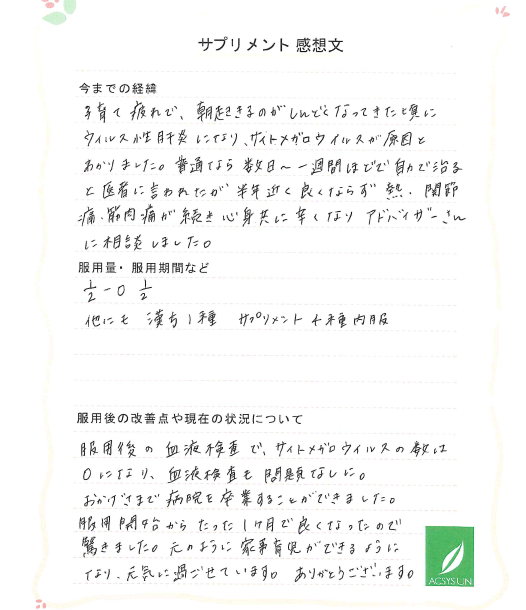 サプリメント 感想文
今までの経緯
子育て疲れで、朝起きるのがしんどくなってきたと共に
ウィルス性肝炎になり、サイトメガロウイルスが原因と
わかりました。普通なら数日〜一週間ほどで自力で治る
と医者に言われたが半年近く良くならず熱、関節
痛、筋肉痛が続き心身共に辛くなりアドバイザーさん
に相談しました。
服用量・服用期間など
1/2 - 0 1/2
他にも 漢方1種 サプリメント4種内服
服用後の改善点や現在の状況について
服用後の血液検査で、サイトメガロウイルスの数は
0になり、血液検査も問題なしに。
おかげさまで病院を卒業することができました。
服用開始からたった1ヶ月で良くなったので
驚きました。元のように家事育児ができるように
なり、元気に過ごせています。ありがとうございます。
AGSYSUN